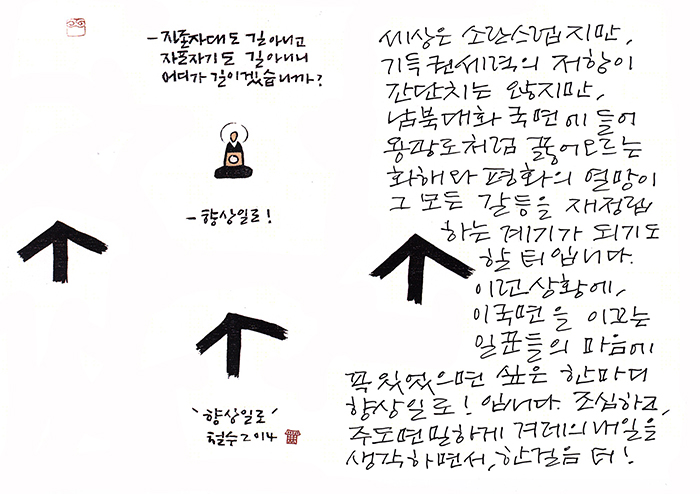 - 자존자대도 길아니고
자포자기도 길아니니
어디가 길이겠습니까?
- 향상일로!
'향상일로'
철수 2014
세상은 소란스럽지만,
기득권세력의 저항이
간단치는 않지만,
남북대화 국면에 들어
용광로처럼 끓어오르는
화해와 평화의 열망이
그 모든 갈등을 재정립
하는 계기가 되기도
할 터입니다.
이런상황에,
이국면을 이끄는
일꾼들의 마음에
꼭 있었으면 싶은 한마디
향상일로! 입니다. 조심하고,
주도면밀하게 겨레의 내일을
생각하면서, 한걸음 더!